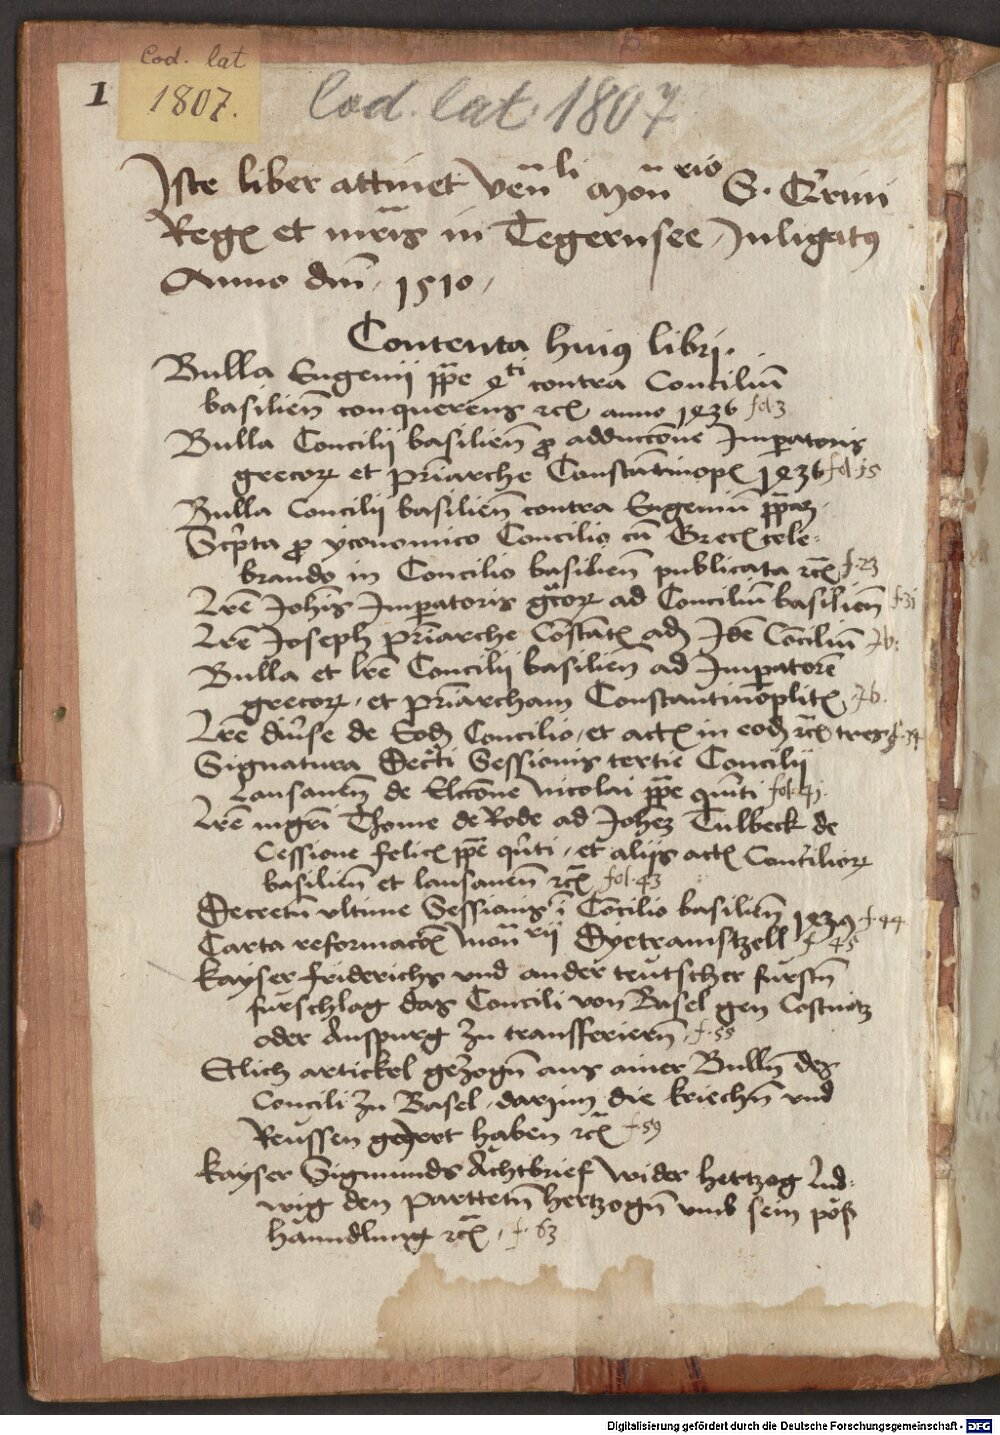 Cod. lat
1807.
1
Cod. lat. 1807
Iste liber attinet Ven̄li Mon̄rio S. Q̄rini
Regꝭ et mr̄is in Tegernsee, Inligatꝰ
Anno dn̄i, 1510,
Contenta huiꝰ libri.
Bulla Eugenii pp̄e 4ti contra Conciliū
basilien̄ conquerens ⁊cꝭ anno 1436 fol 3
Bulla Concilii basilien̄ ꝓ adducc̄one Imꝑatoris
grecoꝝ et pr̄iarche Constāntinopꝭ 1436 fol 15
Bulla Concilii basilien̄ contra Eugeniū pp̄am
Scp̄ta ꝓ yconomico Concilio cū Grecꝭ cele-
brando in Concilio basilien̄ publicata ⁊cꝭ f. 23
Lr̄e Joh̄is Imꝑatoris gr̄coꝝ ad Conciliū basilien̄ f 31
Lr̄e Joseph pr̄iarche Cōstātꝭ ad Idē Cōciliū Ib.
Bulla et lr̄e Concilii basilien̄ ad Imꝑatorē
grecoꝝ, et pr̄iarcham Constantinōplitꝭ, Ib.
Lr̄e diu̾se de Eod̄ Concilio, et actꝭ in eod̄ ⁊cꝭ tres f 34
Signatura Decr̄ti Sessionis tertie Concilii
Lausanen̄ de Elcc̄one Nicolai pp̄e quīti fol. 41.
Lr̄e mgr̄i Thome de Rode ad Joh̄ez Tulbeck de
Cessione felicꝭ pp̄e qn̄ti, et aliis actꝭ Conciliorꝝ
basilien̄ et lausanen̄ ⁊cꝭ fol. 43
Decretū vltime Sessionis ī Cōcilio basilien̄ 1439 f. 44
Carta reformac̄oꝭ Mon̄rii Dyetramszell f 45
Kayser friderichs vnd ander teutscher furstn̄
furschlag das Concili von Basel gen Costnitz
oder Auspurg zu transferiern̄, f. 55
Etlich artickel gezogn̄ aus ainer Bulln̄ des
Concili zu Basel, darinn die kriechn̄ vnd
Reussen geert haben ⁊cꝭ f 59
Kayser Sigmunds Achtbrief wider hertzog Lud-
wig den Parttetn̄ hertzogn̄ vmb sein pöß
hanndlung ⁊cꝭ, f. 63
Digitalisierung gefördert durch die Deutsche Forschungsgemeinschaft - DFG